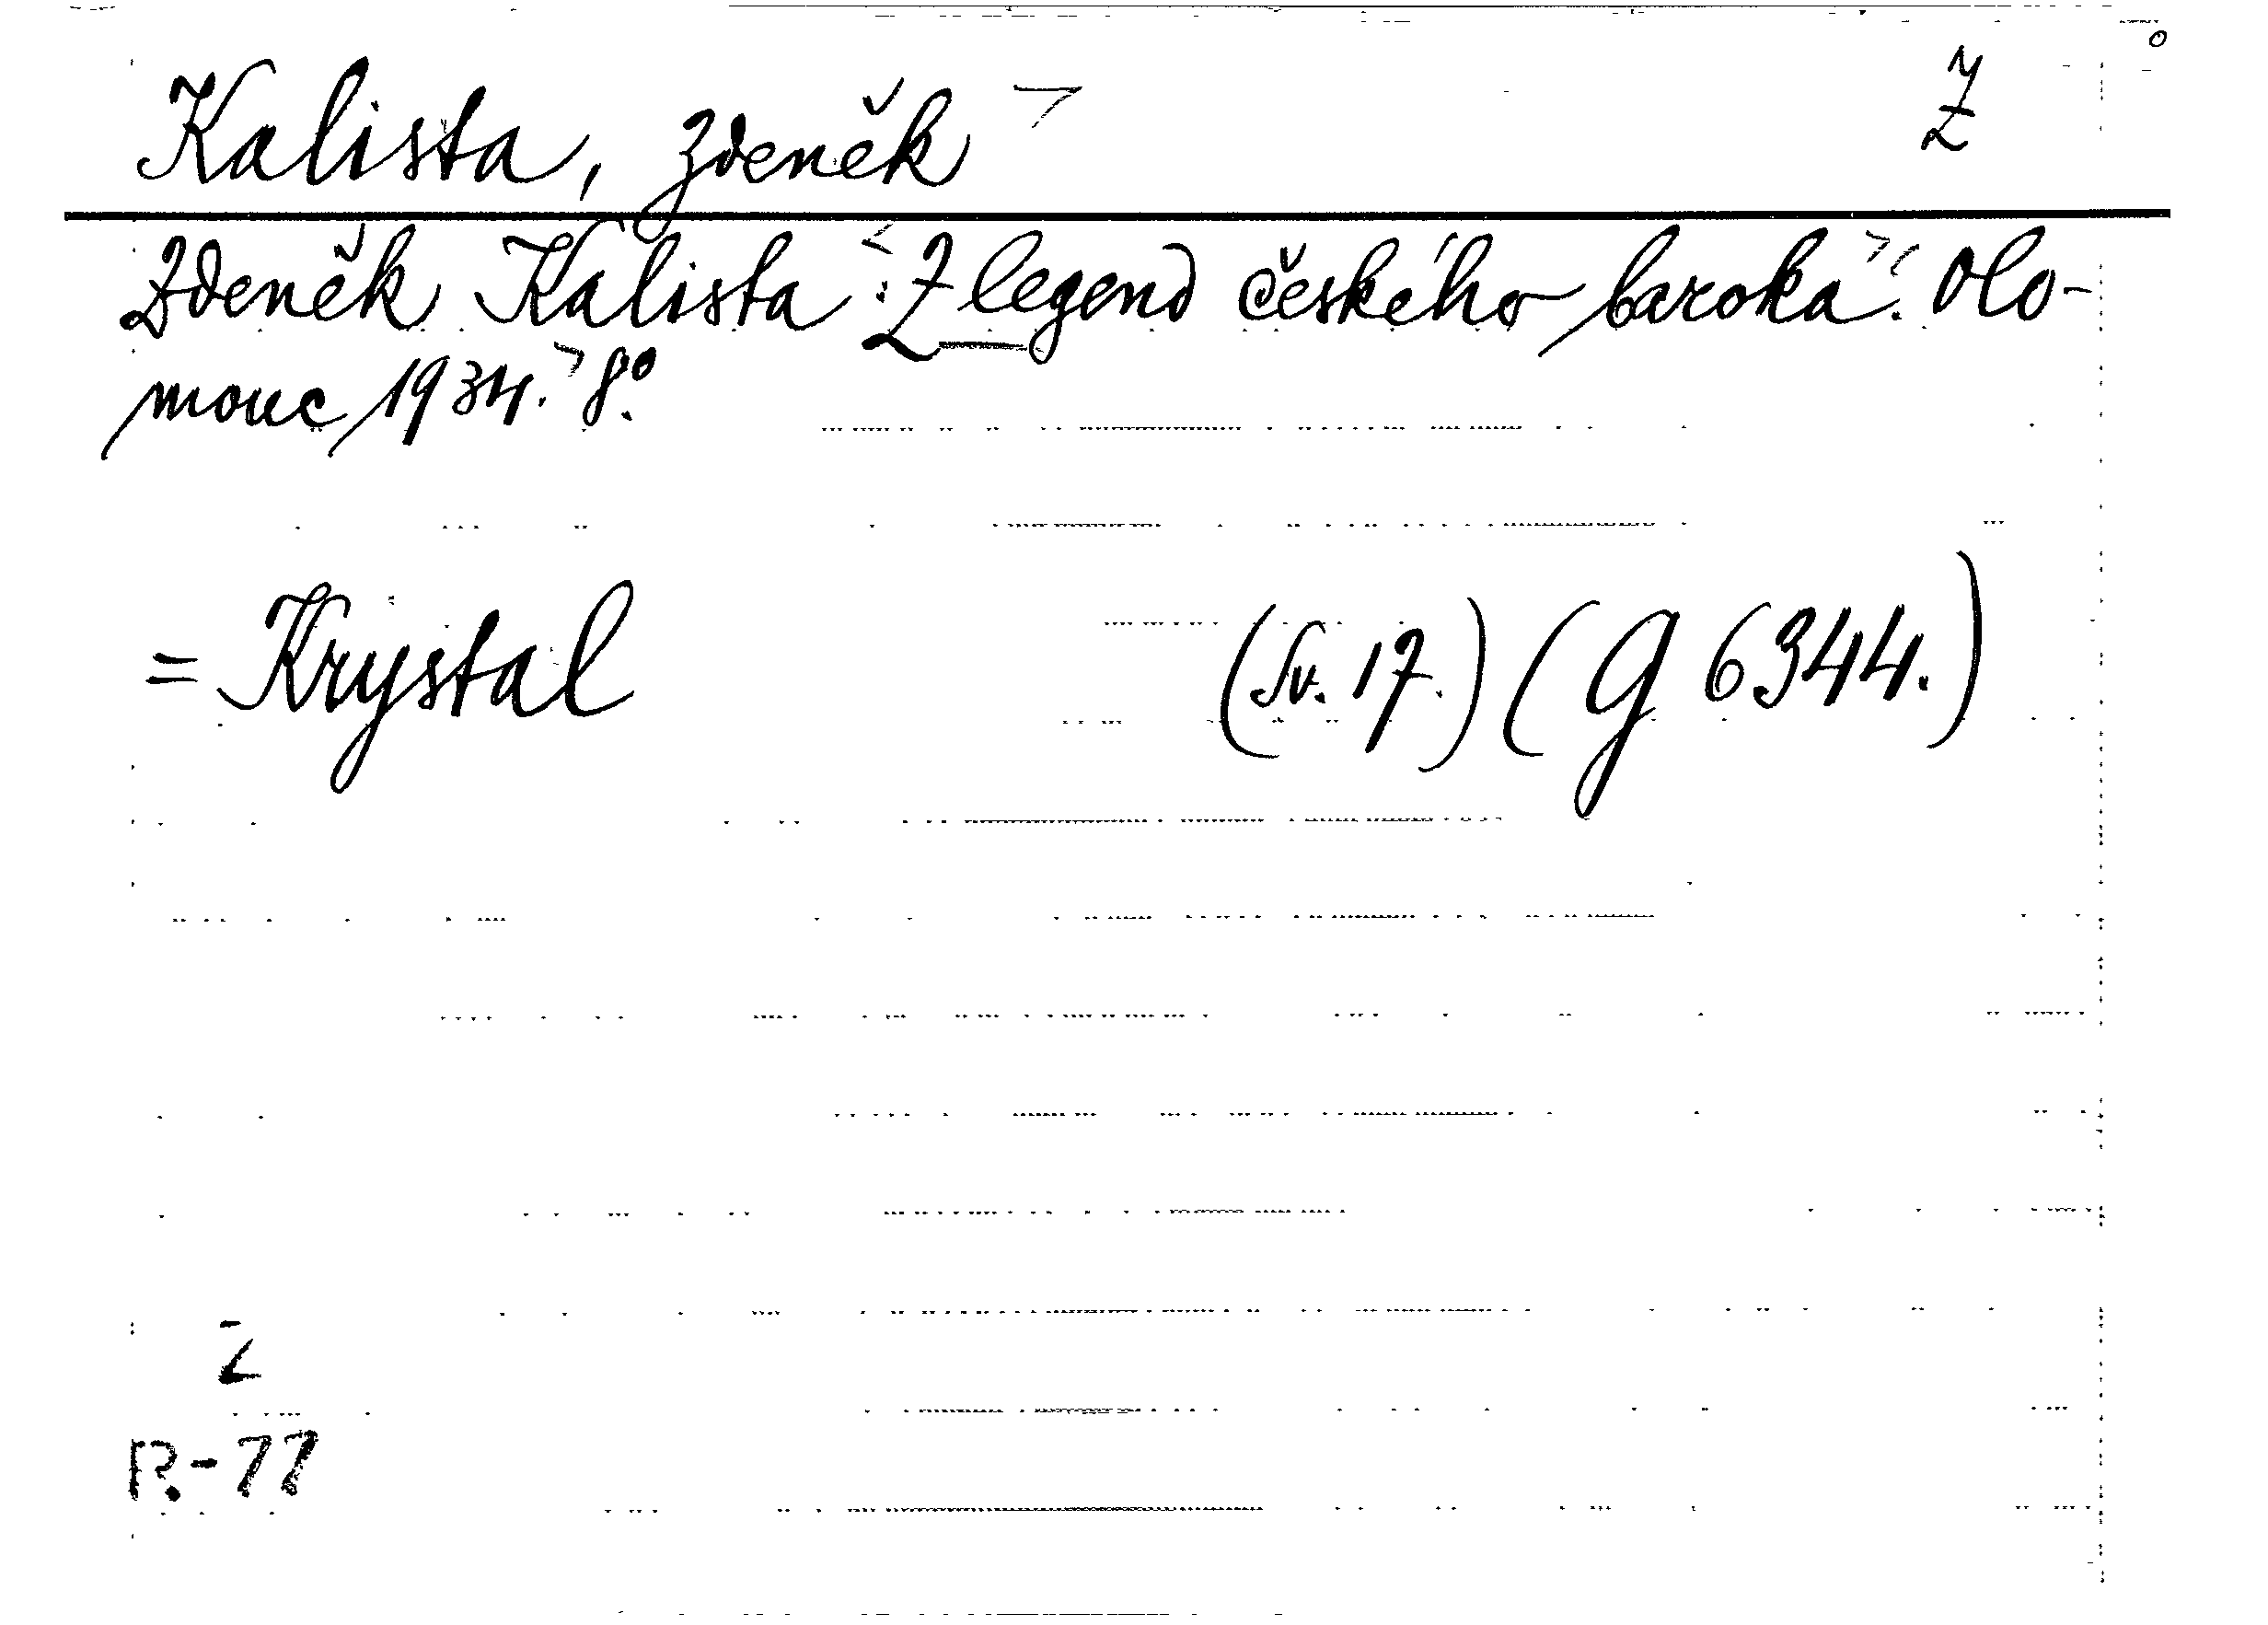 Kalista, Zdeněk Z
Zdeněk Kalista: Z legend českého baroka. Olo-
mouc 1934. 8°.
= Krystal (Sv. 17.) (G 6344.)
Z
R.-77